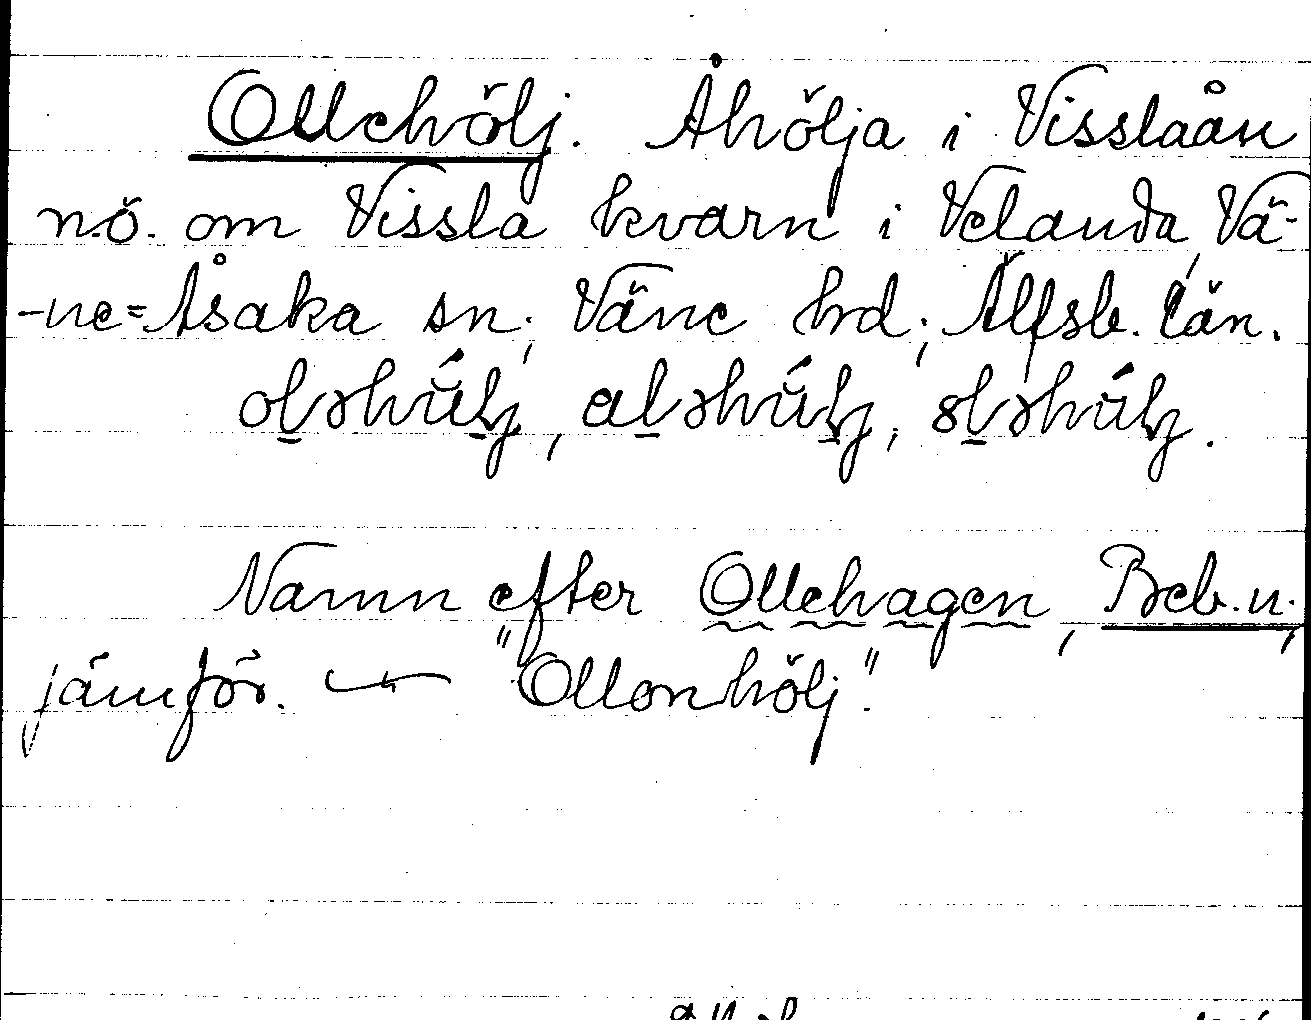 Ollehölj. Åhölja i Visslaån
n.ö. om Vissla kvarn i Velanda, Vä-
-ne=Åsaka sn; Väne hd; Älfsb. län.
Namn efter Ollehagen, Beb.n.,
jämför. "Ollonhölj".